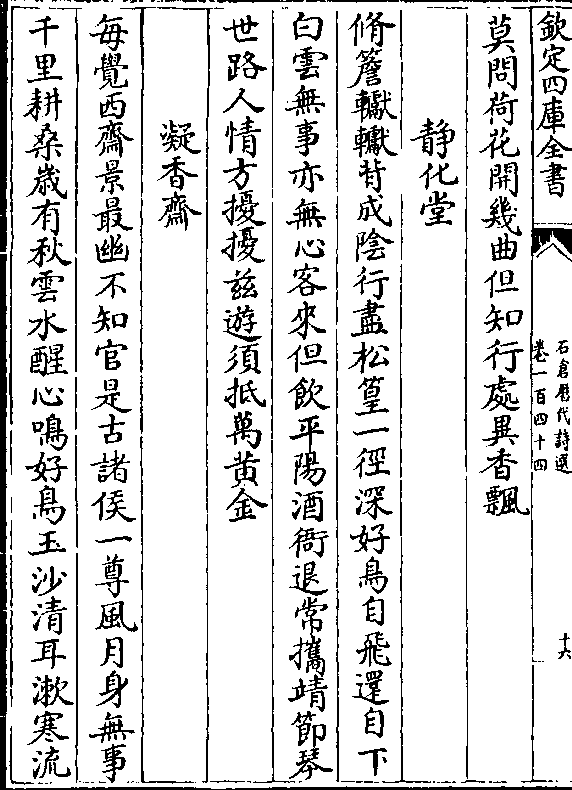 欽定四庫全書
石倉歷代詩選
卷一百四十四
十六
莫問荷花開幾曲但知行處異香飄
静化堂
脩簷轣轣背成陰行盡松篁一徑深好鳥自飛還自下
白雲無事亦無心客來但飲平陽酒衙退常攜靖節琴
世路人情方擾擾兹遊須抵萬黄金
凝香齋
每覺西齋景最幽不知官是古諸侯一尊風月身無事
千里耕桑歲有秋雲水醒心鳴好鳥玉沙清耳漱寒流